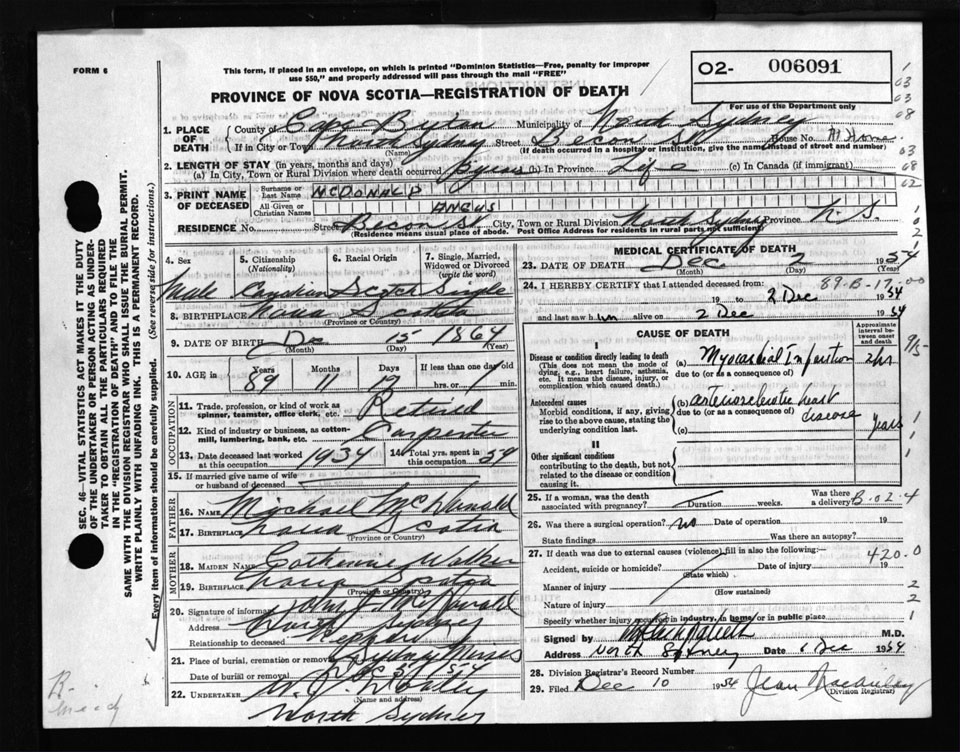 FORM 6
This form, if placed in an envelope, on which is printed "Dominion Statistics—Free, penalty for improper
use $50," and properly addressed will pass through the mail "FREE"
PROVINCE OF NOVA SCOTIA—REGISTRATION OF DEATH
O2- 006091
For use of the Department only
1. PLACE OF DEATH
County of Cape Breton Municipality of North Sydney
If in City or Town North Sydney Street Becon St House No. At Home
(Name) (If death occurred in a hospital or institution, give the name instead of street and number)
2. LENGTH OF STAY (in years, months and days)
(a) In City, Town or Rural Division where death occurred years (b) In Province Life (c) In Canada (if immigrant)
3. PRINT NAME OF DECEASED
Surname or Last Name MCDONALD
All Given or Christian Names ANGUS
RESIDENCE No. Street Becon St City, Town or Rural Division North Sydney Province N.S.
(Residence means usual place of abode. Post Office Address for residents in rural parts not sufficient)
4. Sex
Male
5. Citizenship
(Nationality)
Canadian
6. Racial Origin
Scotch
7. Single, Married, Widowed or Divorced
(write the word)
Single
8. BIRTHPLACE Nova Scotia
(Province or Country)
9. DATE OF BIRTH Dec 15 1864
(Month) (Day) (Year)
10. AGE in Years Months Days If less than one day old
89 11 17 hrs. or min.
OCCUPATION
11. Trade, profession, or kind of work as
spinner, teamster, office clerk, etc. Retired
12. Kind of industry or business, as cotton-
mill, lumbering, bank, etc. Carpenter
13. Date deceased last worked
at this occupation 1934
14. Total yrs. spent in
this occupation 54
15. If married give name of wife
or husband of deceased
FATHER
16. NAME Michael McDonald
17. BIRTHPLACE Nova Scotia
(Province or Country)
MOTHER
18. MAIDEN NAME Catherine Walker
19. BIRTHPLACE Nova Scotia
(Province or Country)
20. Signature of informant John J. McDonald
Address North Sydney
Relationship to deceased Nephew
21. Place of burial, cremation or removal Sydney Mines
Date of burial or removal
22. UNDERTAKER
(Name and address)
North Sydney
MEDICAL CERTIFICATE OF DEATH
23. DATE OF DEATH Dec 2 1954
(Month) (Day) (Year)
24. I HEREBY CERTIFY that I attended deceased from: 89-B-17-00
19 to 2 Dec 1954
and last saw him alive on 2 Dec 1954
CAUSE OF DEATH
Approximate interval between onset and death
I
Disease or condition directly leading to death
(This does not mean the mode of
dying, e.g., heart failure, asthenia,
etc. It means the disease, injury, or
complication which caused death.)
(a) Myocardial Infarction 2 hrs
due to (or as a consequence of)
Antecedent causes
Morbid conditions, if any, giving
rise to the above cause, stating the
underlying condition last.
(b) arteriosclerotic heart
due to (or as a consequence of) disease years
(c)
II
Other significant conditions
contributing to the death, but not
related to the disease or condition
causing it.
25. If a woman, was the death
associated with pregnancy? Duration weeks. Was there a delivery? B-02-4
26. Was there a surgical operation? no Date of operation 19
State findings Was there an autopsy?
27. If death was due to external causes (violence), fill in also the following:— 420.0
Accident, suicide or homicide? Date of injury 19
(State which)
Manner of injury
(How sustained)
Nature of injury
Specify whether injury occurred in industry, in home, or in public place
Signed by M.D.
Address North Sydney Date 6 Dec 1954
28. Division Registrar's Record Number
29. Filed Dec 10 1954 Jean
(Division Registrar)
SEC. 46—VITAL STATISTICS ACT MAKES IT THE DUTY
OF THE UNDERTAKER OR PERSON ACTING AS UNDER-
TAKER TO OBTAIN ALL THE PARTICULARS REQUIRED
IN THE "REGISTRATION OF DEATH" AND TO FILE THE
SAME WITH THE DIVISION REGISTRAR WHO SHALL ISSUE THE BURIAL PERMIT.
WRITE PLAINLY WITH UNFADING INK. THIS IS A PERMANENT RECORD.
Every item of information should be carefully supplied. (See reverse side for instructions.)